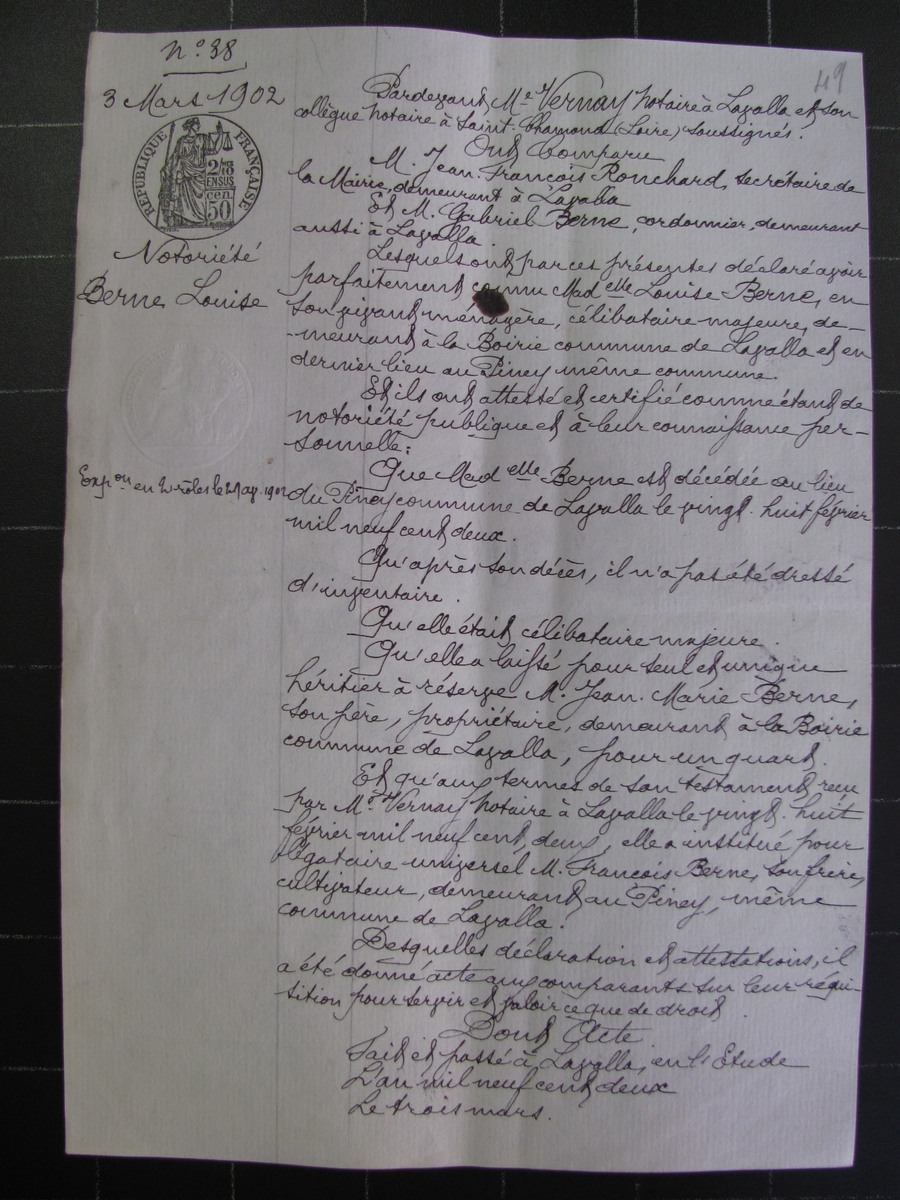 N° 38
49
3 Mars 1902
RÉPUBLIQUE FRANÇAISE
2/10
EN SUS
50 cen.
Notoriété
Berne Louise
Expon en 2 rôles le 2 1902
Pardevant Me Vernay notaire à Lavalla et son
collègue notaire à Saint-Chamond (Loire) soussignés.
Ont Comparu
M. Jean-François Ronchard, secrétaire de
la Mairie, demeurant à Lavalla
Et M. Gabriel Berne, cordonnier, demeurant
aussi à Lavalla.
Lesquels ont par ces présentes déclaré avoir
parfaitement connu Madelle Louise Berne, en
son vivant ménagère, célibataire majeure, de-
-meurant à la Boirie commune de Lavalla et en
dernier lieu au Piney même commune.
Et ils ont attesté et certifié comme étant de
notoriété publique et à leur connaissance per-
sonnelle:
Que Madelle Berne est décédée au lieu
du Piney commune de Lavalla le vingt-huit février
mil neuf cent deux.
Qu'après son décès, il n'a pas été dressé
d'inventaire.
Qu'elle était célibataire majeure.
Qu'elle a laissé pour seul et unique
héritier à réserve M. Jean-Marie Berne,
son père, propriétaire, demeurant à la Boirie
commune de Lavalla, pour un quart.
Et qu'aux termes de son testament reçu
par Me Vernay notaire à Lavalla le vingt-huit
février mil neuf cent deux, elle a institué pour
légataire universel M. François Berne, son frère,
cultivateur, demeurant au Piney, même
commune de Lavalla.
Desquelles déclaration et attestations, il
a été donné acte aux comparants sur leur réqui-
sition pour servir et valoir ce que de droit.
Dont Acte
Fait et passé à Lavalla, en l'Etude
L'an mil neuf cent deux
Le trois mars.